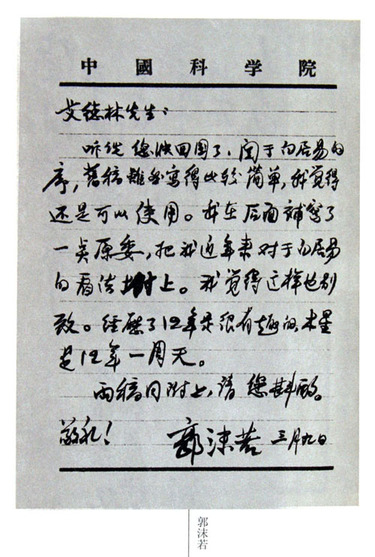 中國科学院
艾德林先生：
听说您快回国了，关于白居易的
序，舊稿雖然寫得比较简单，我觉得
还是可以使用。我在后面補写了
一点原委，把我近年来对于白居易
的看法附上。我觉得这样也别
致。经歷了12年是很有趣的，木星
是12年一周天。
两稿同附上，请您斟酌。
敬礼！
郭沫若 三月九日
郭沫若